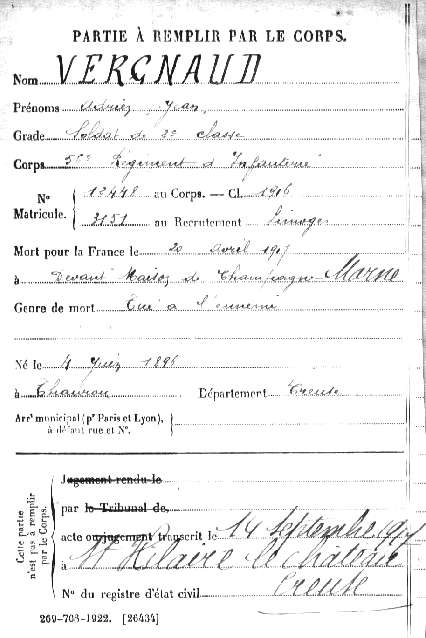 PARTIE À REMPLIR PAR LE CORPS.
Nom VERGNAUD
Prénoms Adrien Jean
Grade Soldat de 2e classe
Corps 50e Régiment d'Infanterie
N° Matricule. 12448 au Corps. — Cl. 1916
3151 au Recrutement Limoges
Mort pour la France le 20 avril 1917
à Devant Maison de Champagne Marne
Genre de mort Tué à l'ennemi
Né le 4 Juin 1896
à Département Creuse
Arrt municipal (pr Paris et Lyon),
à défaut rue et N°.
Cette partie n'est pas à remplir par le Corps.
Jugement rendu le
par le Tribunal de
acte ou jugement transcrit le 14 Septembre 1917
à St Hilaire le château
Creuse
N° du registre d'état civil
269-708-1922. [26434]